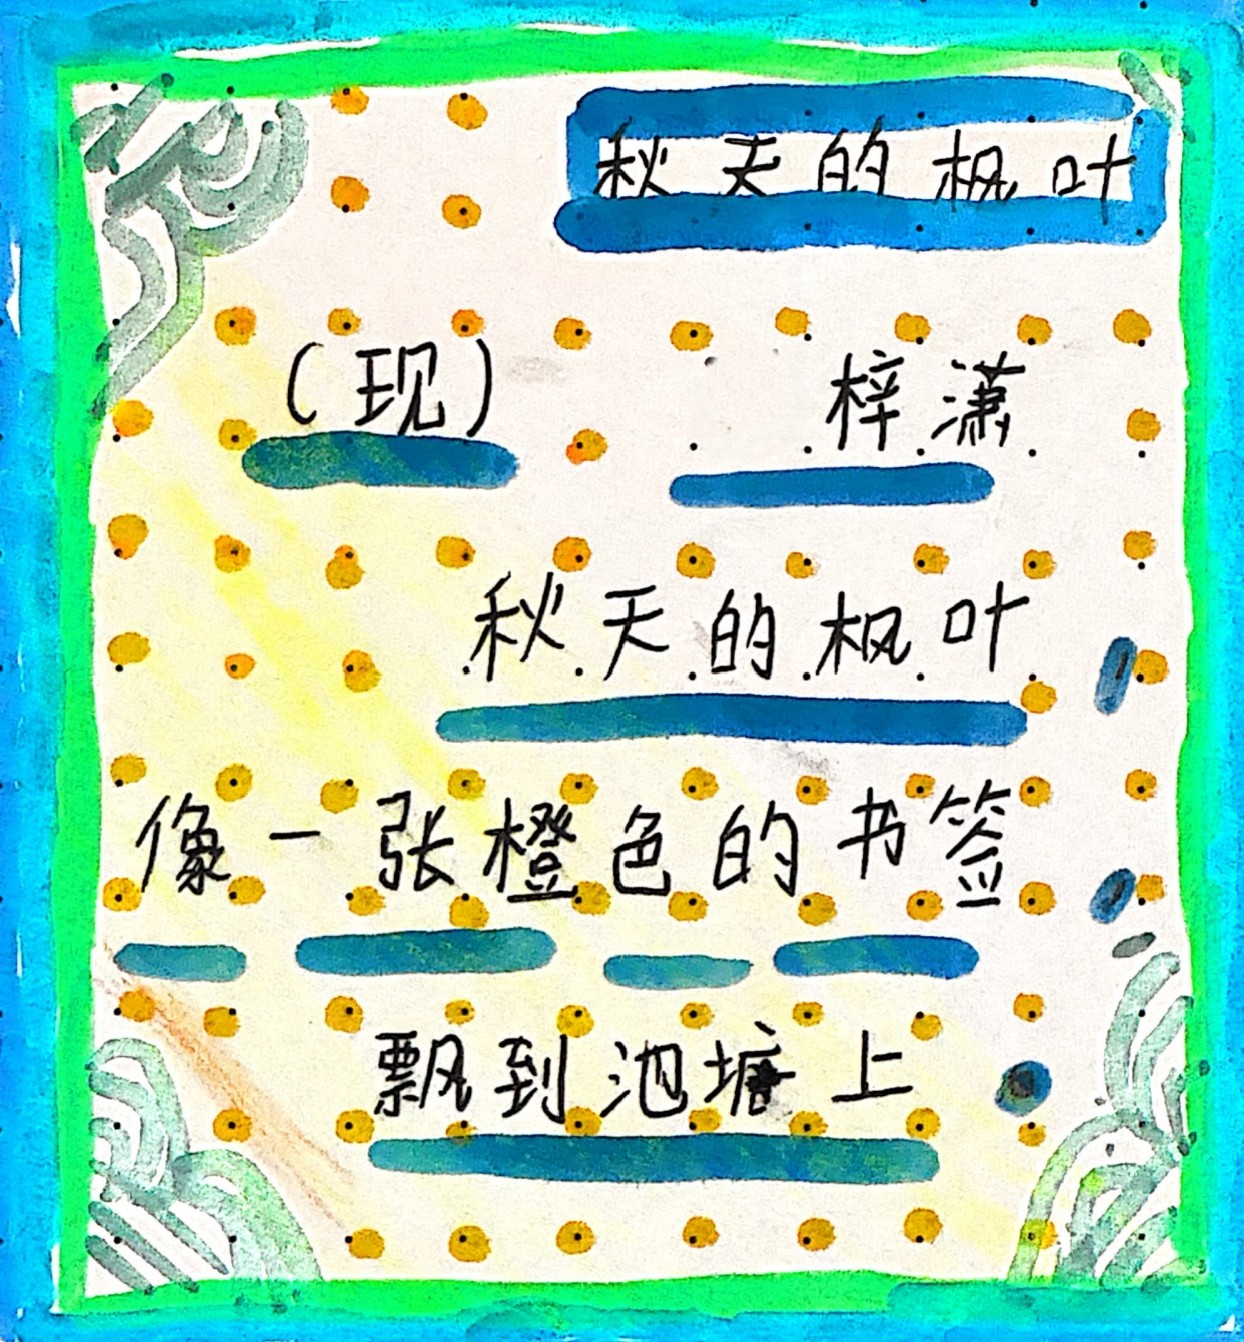 秋天的枫叶
(现) 梓潇
秋天的枫叶
像一张橙色的书签
飘到池塘上